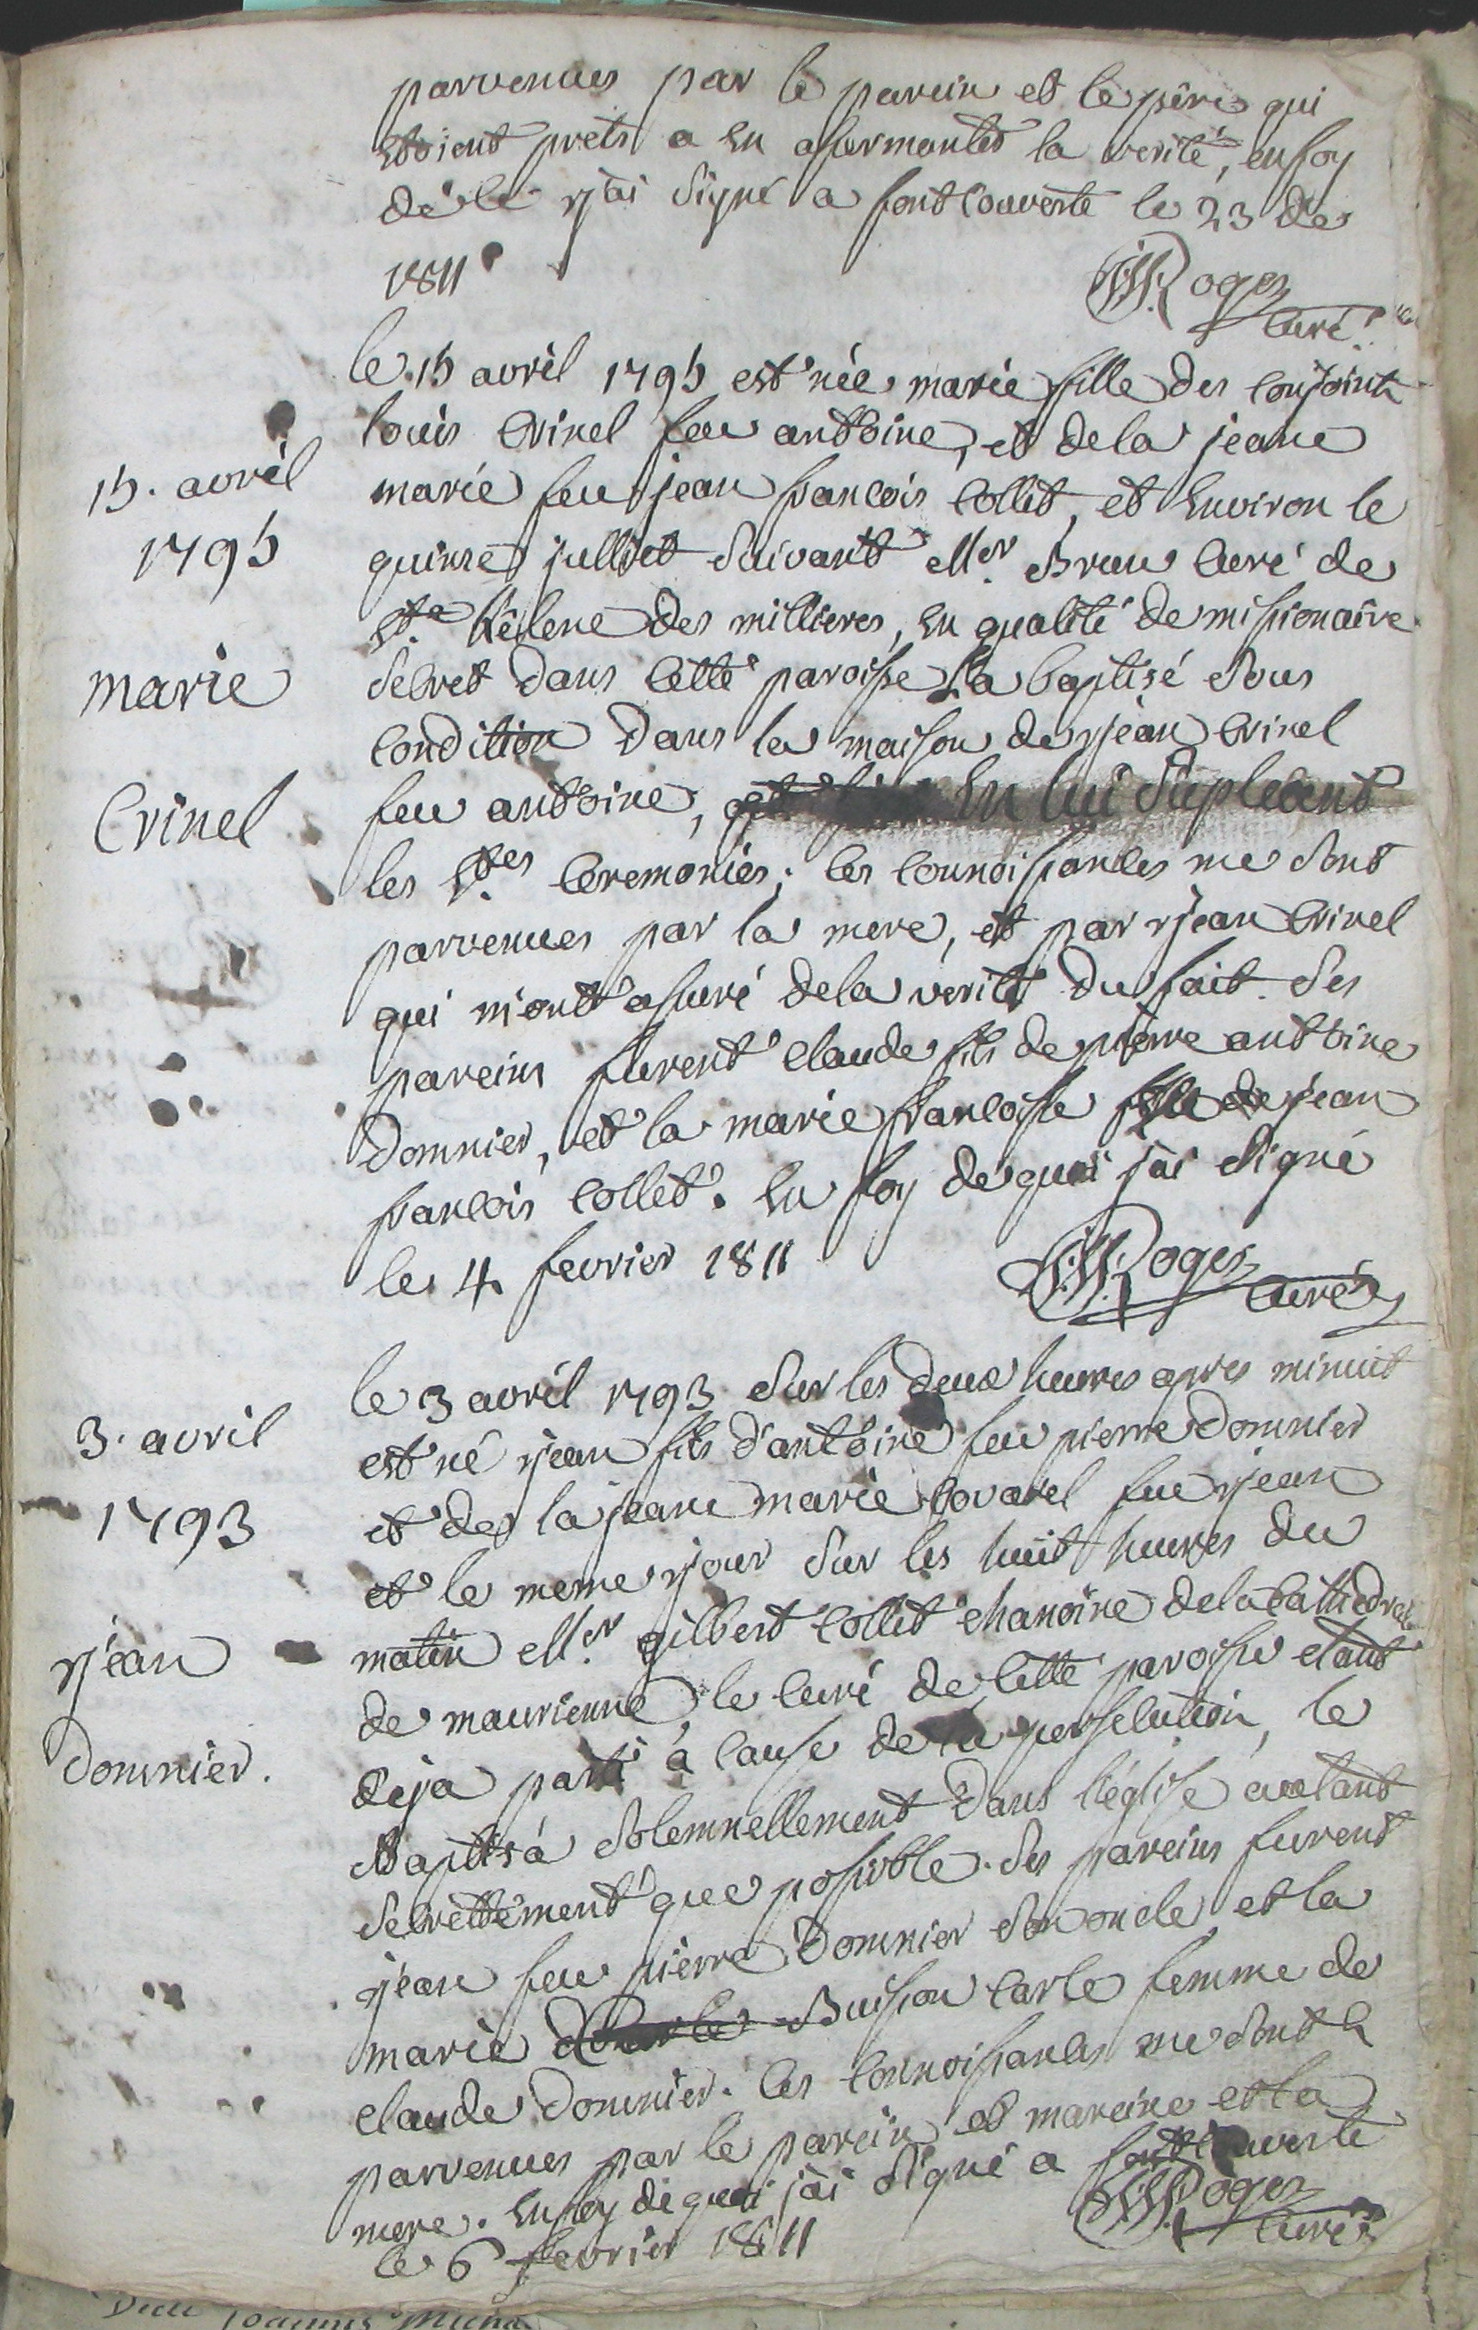 parvenues par le parein et le père qui
etoient prets a en assermenter la verité, en foy
de ce j'ai signé a fontcouverte le 23 de
1811
Roger
curé
le 15 avril 1795 est née marie fille des conjoints
louis Crinel feu antoine, et de la jeane
15. avril
marie feu jean francois Collet, et Environ le
1795
quinze julliet suivant Mr. Brun Curé de
Ste. hêlene des millieres, en qualité de missionaire
marie
secret dans cette paroisse l'a baptisé sous
condition dans la maison de jean Crinel
Crinel
feu antoine, En lui supleant
les Stes Ceremonies; les connoissances me sont
parvenues par la mere, et par jean Crinel
qui m'ont assuré de la verité du fait. Ses
pareins furent claude fils de pierre antoine
Domnier, et la marie francoise fille de jean
francois Collet. En foy de quoi j'ai signé
le 4 fevrier 1811
Roger
curé
le 3 avril 1793 sur les deux heures apres minuit
3. avril
est né jean fils d'antoine feu pierre Domnier
1793
et de la jeane marie Covarel feu jean
et le meme jour sur les huit heures du
matin Mr. gilbert Collet chanoine de la Cathedrale
jean
de maurienne, le Curé de cette paroisse etant
deja parti à cause de la persecution, le
Domnier.
Baptisá solemnellement dans l'église autant
secrettement que possible. Ses pareins furent
jean feu pierre Domnier son oncle et la
marie Buisson Carle femme de
claude Domnier. les connoissances me sont
parvenues par le parein et mareine et la
mere. En foy de quoi j'ai signé a fontcouverte
le 6 fevrier 1811
Roger
curé